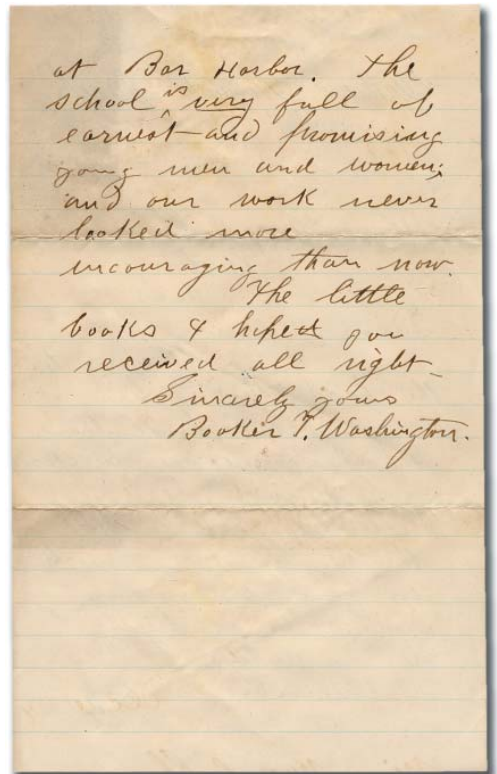 at Bar Harbor. The
school is very full of
earnest and promising
young men and women;
and our work never
looked more
encouraging than now.
The little
books I hoped you
received all right—
Sincerely yours
Booker T. Washington.